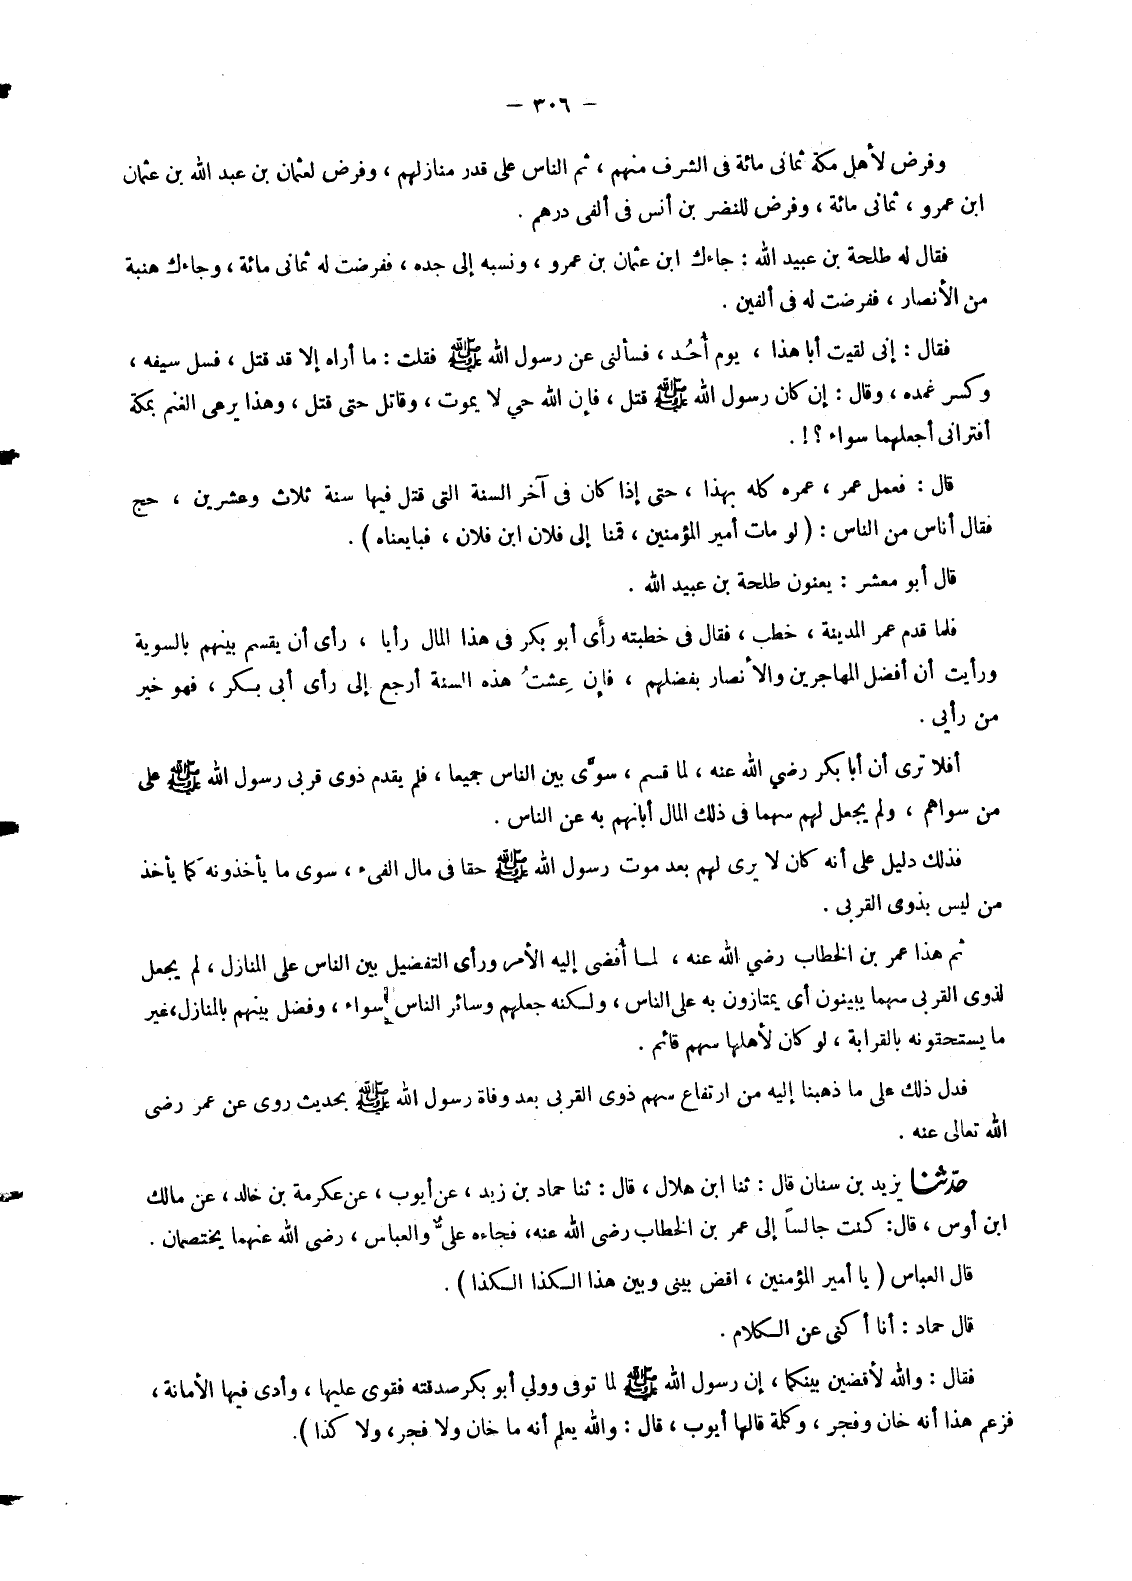 — ٣٠٦ —
وفرض لأهل مكة ثمانى مائة فى الشرف منهم ، ثم الناس على قدر منازلهم ، وفرض لعثمان بن عبد الله بن عثمان
ابن عمرو ، ثمانى مائة ، وفرض للنضر بن أنس فى ألفى درهم .
فقال له طلحة بن عبيد الله : جاءك ابن عثمان بن عمرو ، ونسبه إلى جده ، ففرضت له ثمانى مائة ، وجاءك هنبة
من الأنصار ، ففرضت له فى ألفين .
فقال : إنى لقيت أبا هذا ، يوم أُحُد ، فسألنى عن رسول الله ﷺ فقلت : ما أراه إلا قد قتل ، فسل سيفه ،
وكسر غمده ، وقال : إن كان رسول الله ﷺ قتل ، فإن الله حي لا يموت ، وقاتل حتى قتل ، وهذا يرعى الغنم بمكة
أفترانى أجعلهما سواء ؟! .
قال : فعمل عمر ، عمره كله بهذا ، حتى إذا كان فى آخر السنة التى قتل فيها سنة ثلاث وعشرين ، حج
فقال أناس من الناس : ( لو مات أمير المؤمنين ، قمنا إلى فلان ابن فلان ، فبايعناه ) .
قال أبو معشر : يعنون طلحة بن عبيد الله .
فلما قدم عمر المدينة ، خطب ، فقال فى خطبته رأَى أبو بكر فى هذا المال رأيا ، رأى أن يقسم بينهم بالسوية
ورأيت أن أفضل المهاجرين والأنصار بفضلهم ، فإن عِشتُ هذه السنة أرجع إلى رأى أبى بكر ، فهو خير
من رأيى .
أفلا ترى أن أبا بكر رضي الله عنه ، لما قسم ، سوَّى بين الناس جميعا ، فلم يقدم ذوى قربى رسول الله ﷺ على
من سواهم ، ولم يجعل لهم سهما فى ذلك المال أبانهم به عن الناس .
فذلك دليل على أنه كان لا يرى لهم بعد موت رسول الله ﷺ حقا فى مال الفىء ، سوى ما يأخذونه كما يأخذ
من ليس بذوى القربى .
ثم هذا عمر بن الخطاب رضي الله عنه ، لمـا أُفضى إليه الأمر ورأى التفضيل بين الناس على المنازل ، لم يجعل
لذوى القربى سهما يبينون أى يمتازون به على الناس ، ولكنه جعلهم وسائر الناس سواء ، وفضل بينهم بالمنازل،غير
ما يستحقونه بالقرابة ، لو كان لأهلها سهم قائم .
فدل ذلك على ما ذهبنا إليه من ارتفاع سهم ذوى القربى بعد وفاة رسول الله ﷺ بحديث روى عن عمر رضى
الله تعالى عنه .
حدّثنا يزيد بن سنان قال : ثنا ابن هلال ، قال : ثنا حماد بن زيد ، عن أيوب ، عن عكرمة بن خالد ، عن مالك
ابن أوس ، قال: كنت جالساً إلى عمر بن الخطاب رضى الله عنه، فجاءه علىٌّ والعباس ، رضى الله عنهما يختصمان .
قال العباس ( يا أمير المؤمنين ، اقض بينى وبين هذا الكذا الكذا ) .
قال حماد : أنا أكنى عن الكلام .
فقال : والله لأقضين بينكما ، إن رسول الله ﷺ لما توفى وولي أبو بكر صدقته فقوى عليها ، وأدى فيها الأمانة ،
فزعم هذا أنه خان وفجر ، وكلمة قالها أيوب ، قال : والله يعلم أنه ما خان ولا فجر، ولا كذا ).